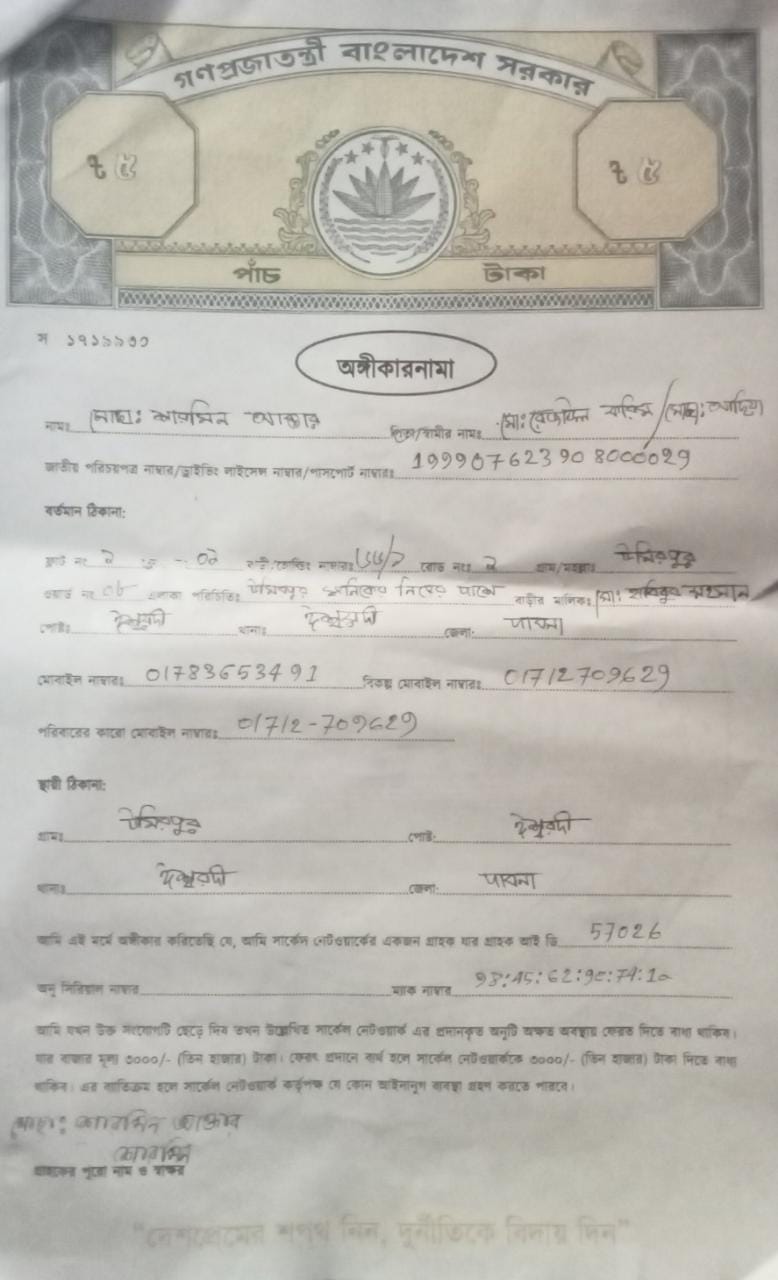 গণপ্রজাতন্ত্রী বাংলাদেশ সরকার
৳ ৫ ৳ ৫
পাঁচ টাকা
ম ১৭১৯৯৩০
অঙ্গীকারনামা
নামঃ মোছাঃ আক্তার পিতা/স্বামীর নামঃ মোঃ
জাতীয় পরিচয়পত্র নাম্বার/ড্রাইভিং লাইসেন্স নাম্বার/পাসপোর্ট নাম্বারঃ 199907623908000029
বর্তমান ঠিকানা:
ফ্লাট নং বাড়ী/হোল্ডিং নাম্বারঃ রোড নংঃ গ্রাম/মহল্লাঃ
ওয়ার্ড নং ০৮ এলাকা পরিচিতিঃ পাশে বাড়ীর মালিকঃ মোঃ
পোষ্টঃ ঈশ্বরদী থানাঃ ঈশ্বরদী জেলা: পাবনা
মোবাইল নাম্বারঃ 01783653491 বিকল্প মোবাইল নাম্বারঃ 01712709629
পরিবারের কারো মোবাইল নাম্বারঃ 01712-709629
স্থায়ী ঠিকানা:
গ্রামঃ পোষ্ট: ঈশ্বরদী
থানাঃ ঈশ্বরদী জেলা: পাবনা
আমি এই মর্মে অঙ্গীকার করিতেছি যে, আমি সার্কেল নেটওয়ার্কের একজন গ্রাহক যার গ্রাহক আই ডি 57026
অনু সিরিয়াল নাম্বার ম্যাক নাম্বার
আমি যখন উক্ত সংযোগটি ছেড়ে দিব তখন উল্লেখিত সার্কেল নেটওয়ার্ক এর প্রদানকৃত অনুটি অক্ষত অবস্থায় ফেরত দিতে বাধ্য থাকিব।
যার বাজার মূল্য ৩০০০/- (তিন হাজার) টাকা। ফেরৎ প্রদানে ব্যর্থ হলে সার্কেল নেটওয়ার্ককে ৩০০০/- (তিন হাজার) টাকা দিতে বাধ্য
থাকিব। এর ব্যতিক্রম হলে সার্কেল নেটওয়ার্ক কর্তৃপক্ষ যে কোন আইনানুগ ব্যবস্থা গ্রহন করতে পারবে।
মোছাঃ আক্তার
গ্রাহকের পুরো নাম ও স্বাক্ষর
"দেশপ্রেমের শপথ নিন, দুর্নীতিকে বিদায় দিন"